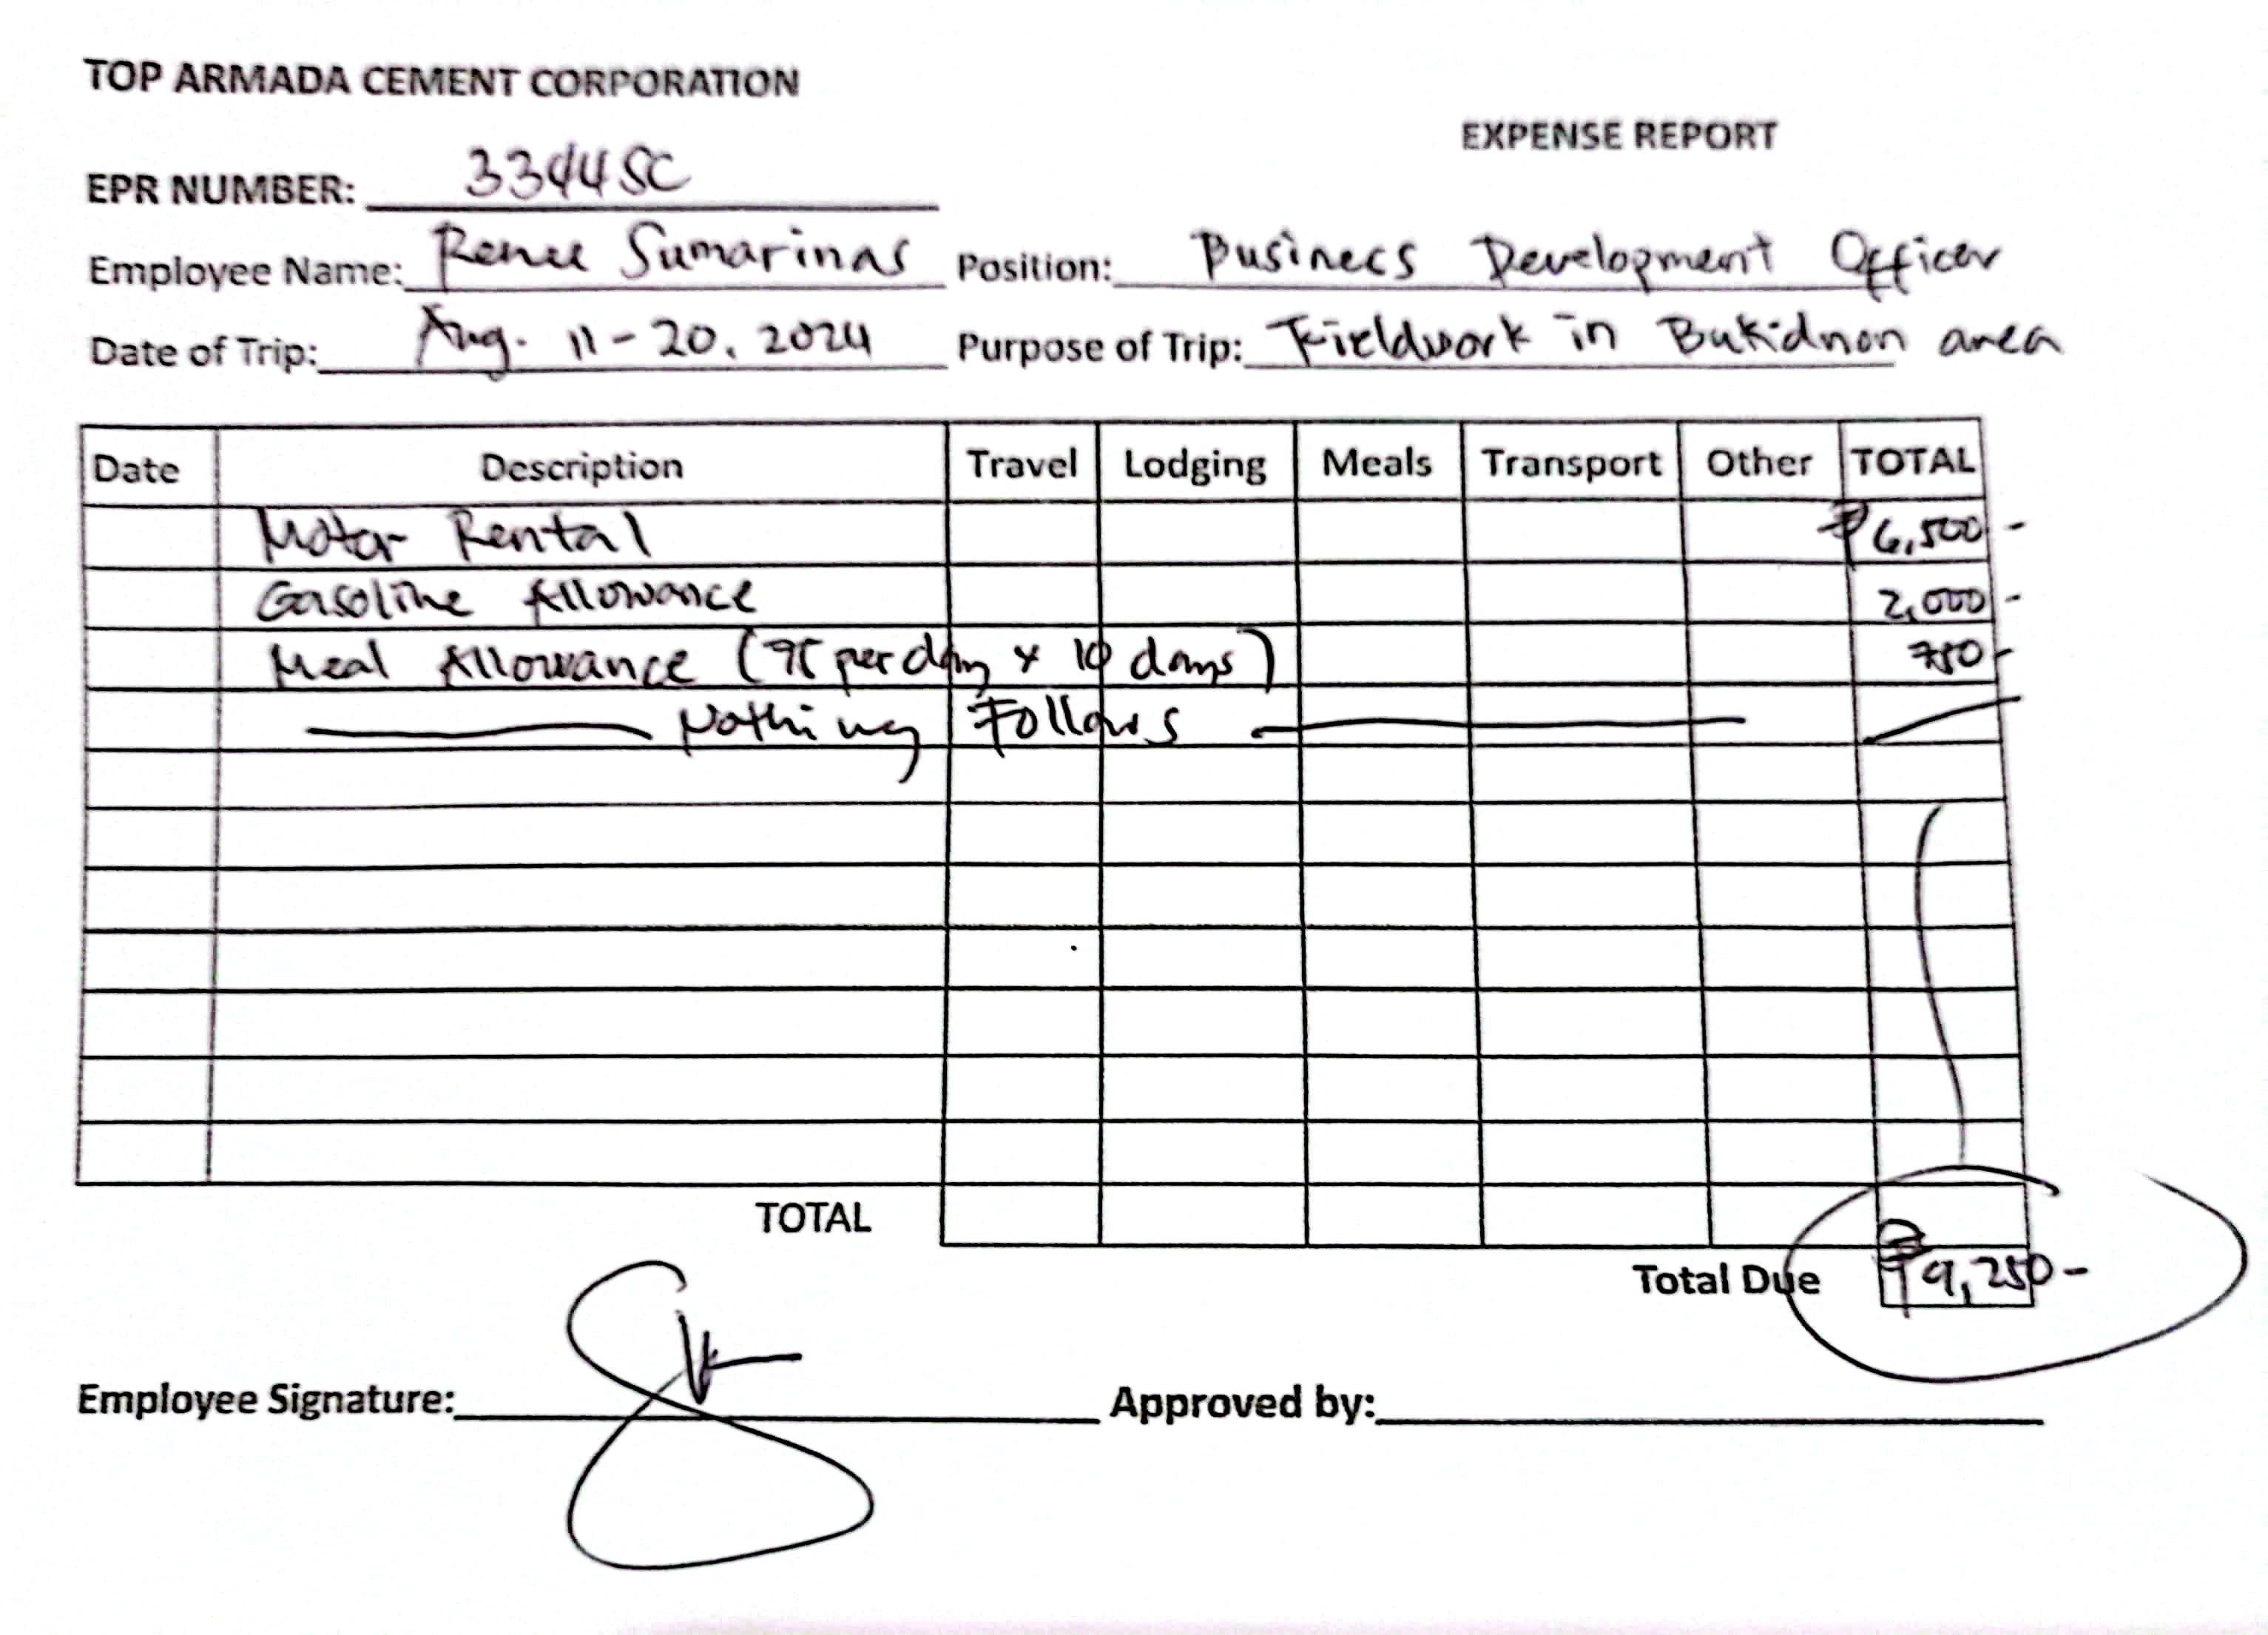 TOP ARMADA CEMENT CORPORATION
EXPENSE REPORT
EPR NUMBER: 3344SC
Employee Name: Renee Sumarinas Position: Business Development Officer
Date of Trip: Aug. 11-20, 2024 Purpose of Trip: Fieldwork in Bukidnon area
Date Description Travel Lodging Meals Transport Other TOTAL
Motor Rental ₱6,500-
Gasoline Allowance 2,000-
Meal Allowance (75 per day x 10 days) 750-
Nothing Follows
TOTAL
Total Due ₱9,250-
Employee Signature: Approved by: